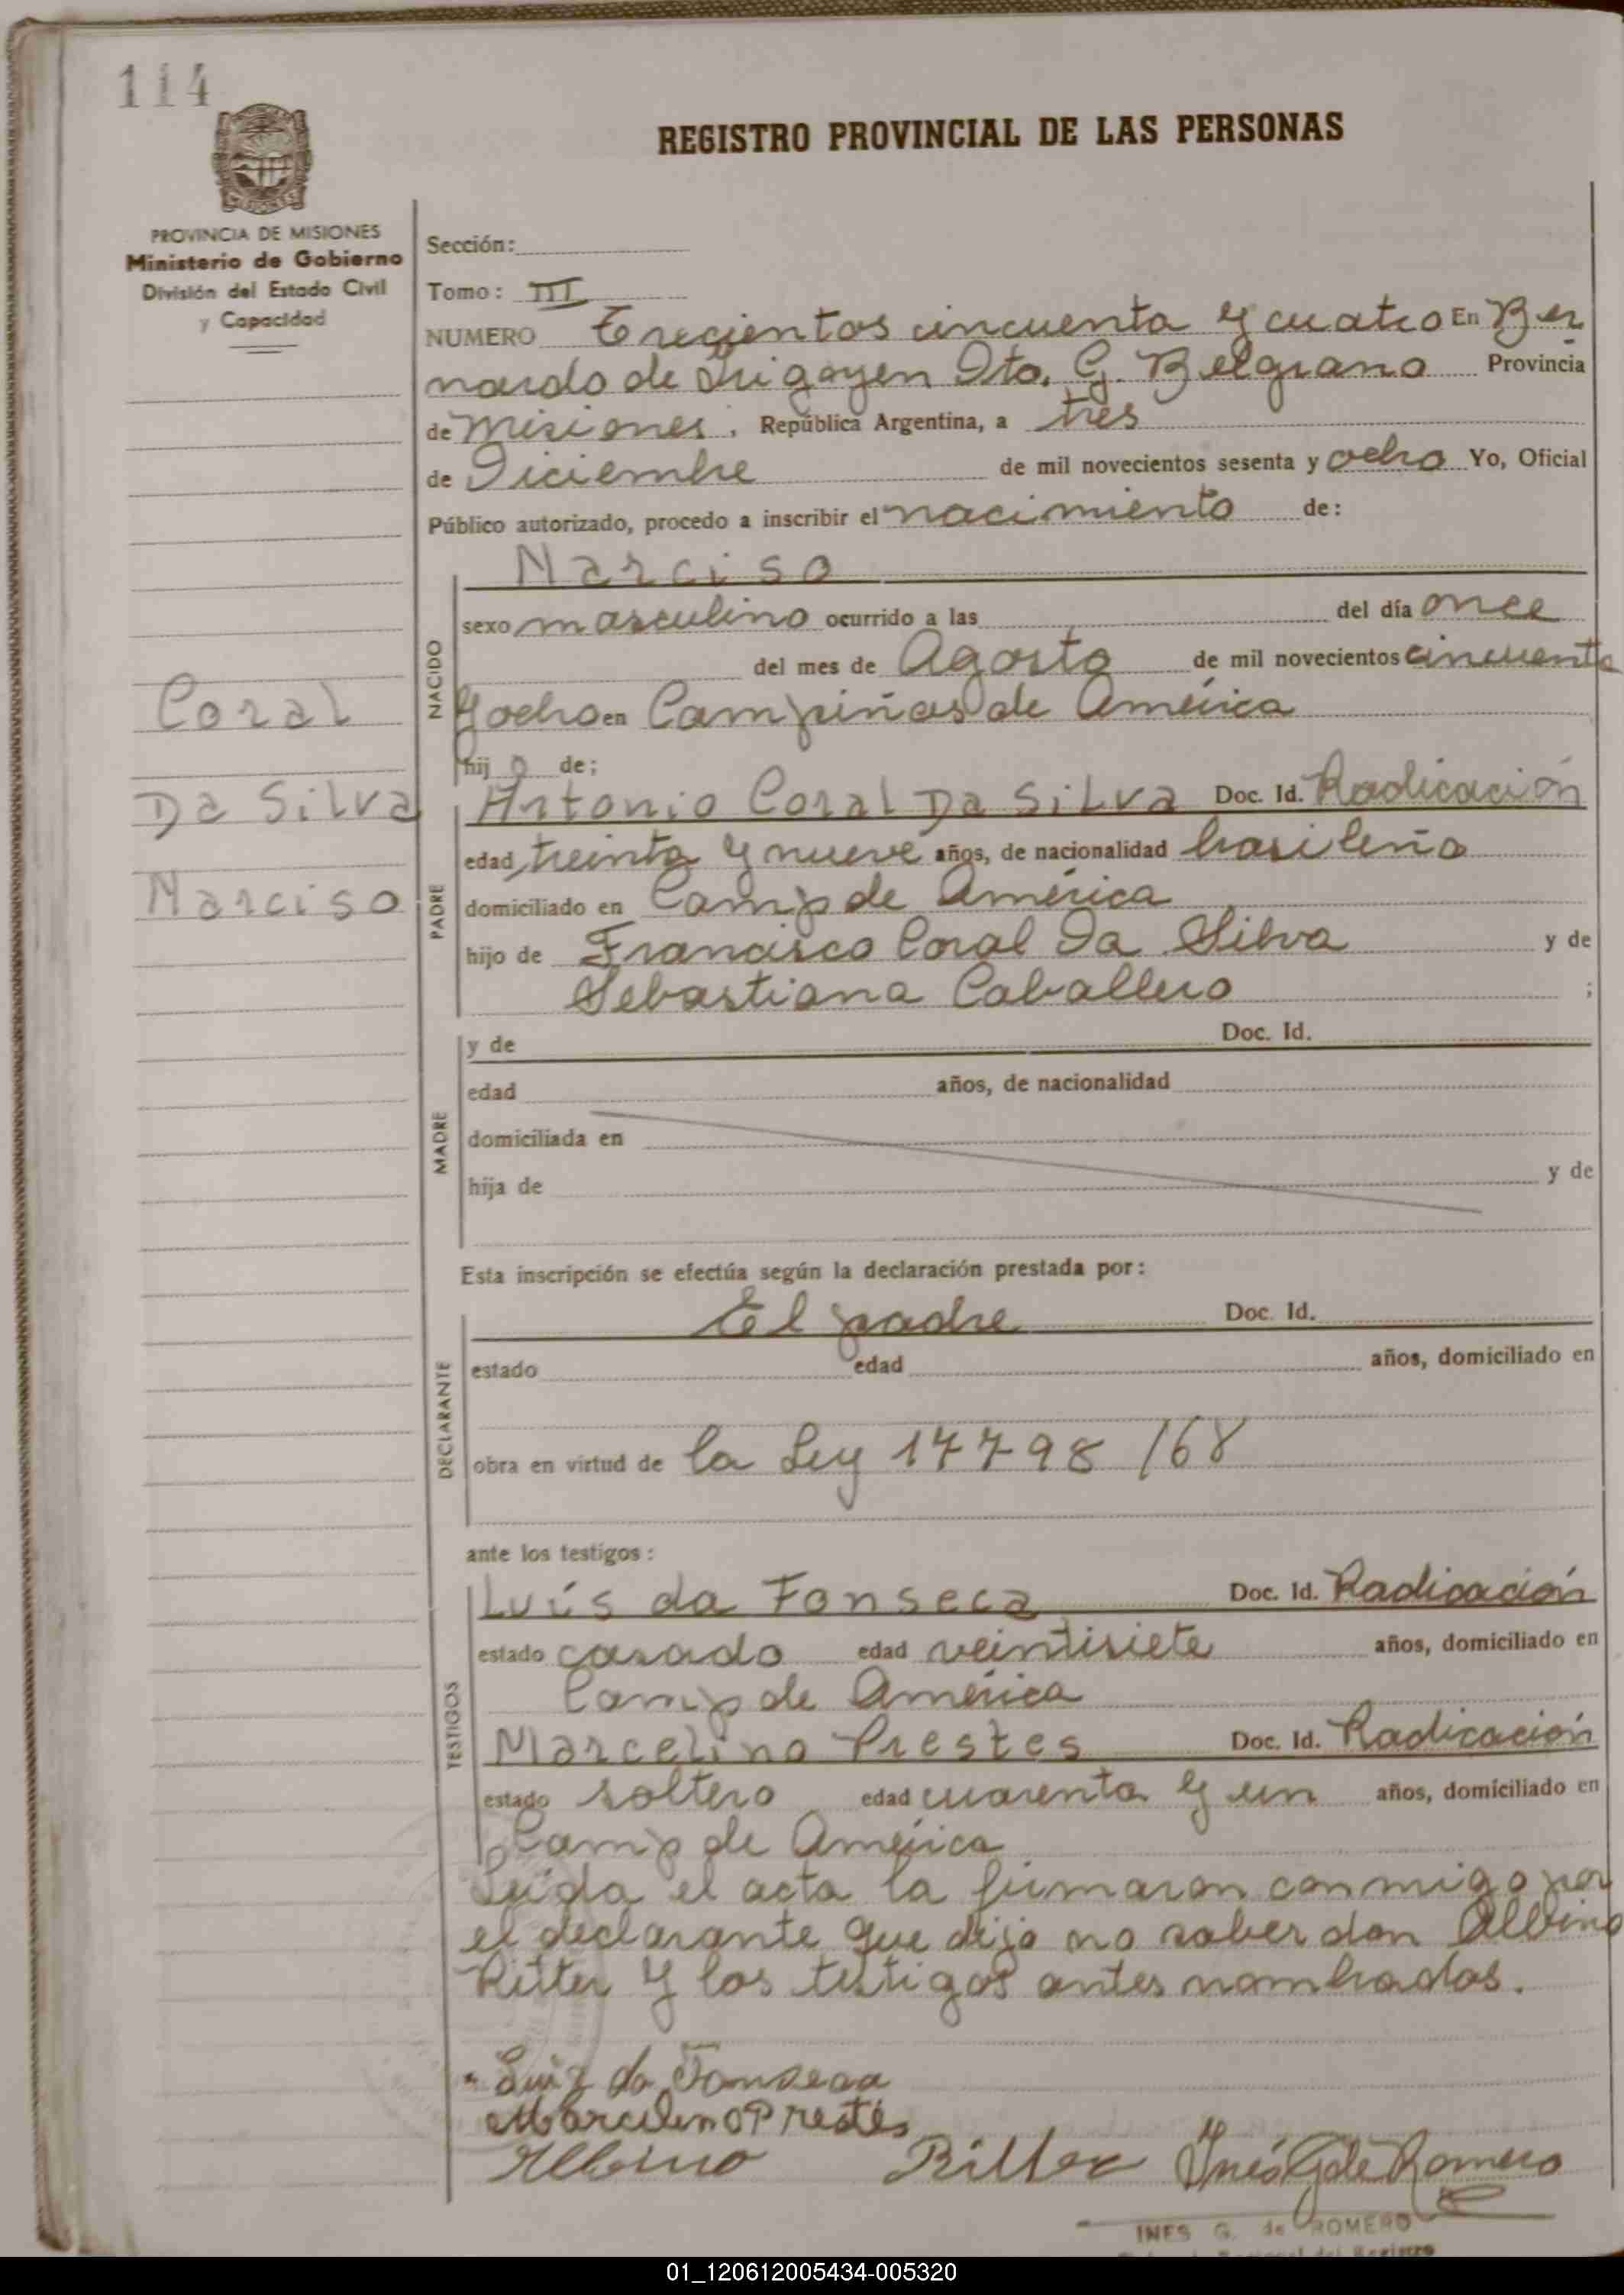 114
REGISTRO PROVINCIAL DE LAS PERSONAS
MISIONES
PROVINCIA DE MISIONES
Ministerio de Gobierno
División del Estado Civil
y Capacidad
Coral
Da Silva
Narciso
Sección:
Tomo: III
NUMERO Trecientos cincuenta y cuatro En Ber
nardo de Irigoyen Dto. G. Belgrano Provincia
de Misiones, República Argentina, a tres
de Diciembre de mil novecientos sesenta y ocho Yo, Oficial
Público autorizado, procedo a inscribir el nacimiento de:
NACIDO
Narciso
sexo masculino ocurrido a las del día once
del mes de Agosto de mil novecientos cincuenta
y ocho en Campiñas de América
hij o de;
PADRE
Antonio Coral Da Silva Doc. Id. Radicación
edad treinta y nueve años, de nacionalidad brasileña
domiciliado en Camp de América
hijo de Francisco Coral Da Silva y de
Sebastiana Caballero ;
MADRE
y de Doc. Id.
edad años, de nacionalidad
domiciliada en
hija de y de
Esta inscripción se efectúa según la declaración prestada por:
DECLARANTE
El padre Doc. Id.
estado edad años, domiciliado en
obra en virtud de la Ley 17798/68
ante los testigos:
TESTIGOS
Luís da Fonseca Doc. Id. Radicación
estado casado edad veintisiete años, domiciliado en
Camp de América
Marcelino Prestes Doc. Id. Radicación
estado soltero edad cuarenta y un años, domiciliado en
Camp de América
Leída el acta la firmaron conmigo por
el declarante que dijo no saber don Albino
Ritter y los testigos antes nombrados.
Luiz da Fonseca
Marcelino Prestes
Albino Ritter Inés G de Romero
INES G. de ROMERO
01_120612005434-005320